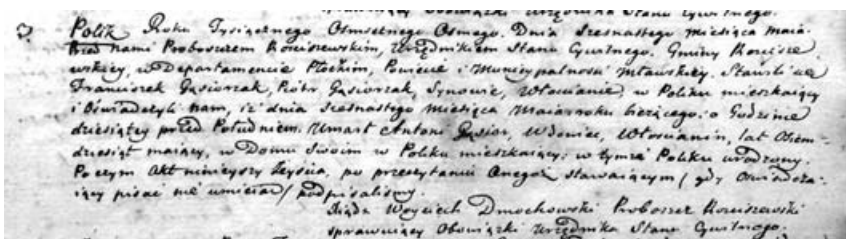 sprawuiący Obowiązki Urzędnika Stanu Cywilnego.
3 Polik Roku Tysiącznego Osmsetnego Osmego. Dnia Szesnastego miesiąca maia
Przed nami Proboszczem Kosciszewskim, Urzędnikiem Stanu Cywilnego. Gminy Koscisze
wskiey, w Departamencie Płockim, Powiecie i Municypalnosci Mławskiey. Stawili się
Franciszek Gąsiorzak, Piotr Gąsiorzak, Synowie, Włoscianie, w Poliku mieszkaiący
i Oświadczyli Nam, iż dnia Szesnastego Miesiąca Maia roku bieżącego o Godzinie
dziesiątey przed Południem. Umarł Antoni Gąsior, Wdowiec, Włoscianin, lat Osiem-
dziesiąt maiący, w Domu Swoim w Poliku mieszkaiący; w tymże Poliku urodzony.
Po czym Akt ninieyszy Zeyscia, po przeczytaniu Onegoż stawaiącym / gdy Oswiadcza-
iący pisać nie umieią / podpisalismy.
Xiądz Woyciech Dmochowski Proboszcz Kosciszewski
sprawuiący Obowiązki Urzędnika Stanu Cywilnego.